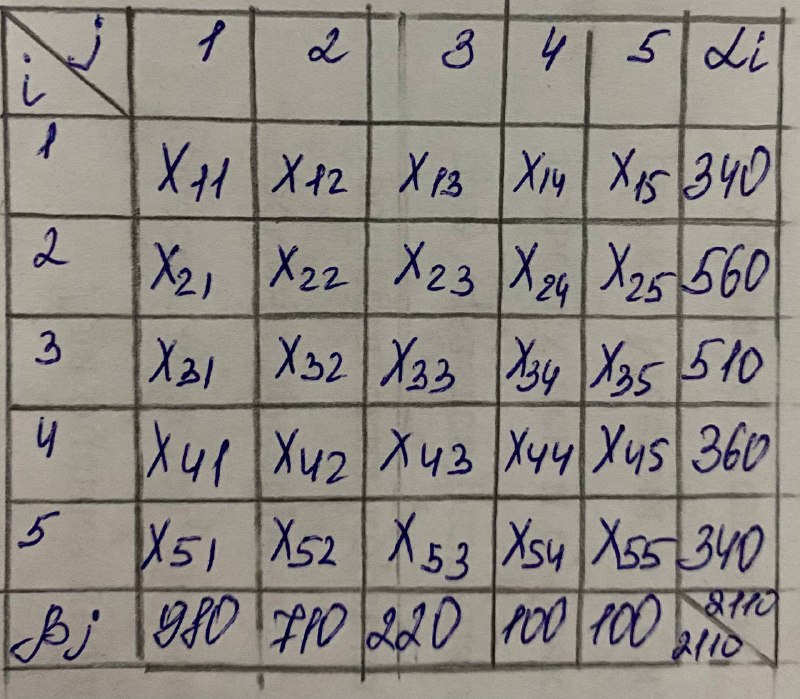 i j 1 2 3 4 5 αi
1 X11 X12 X13 X14 X15 340
2 X21 X22 X23 X24 X25 560
3 X31 X32 X33 X34 X35 510
4 X41 X42 X43 X44 X45 360
5 X51 X52 X53 X54 X55 340
βj 980 710 220 100 100 2110 2110